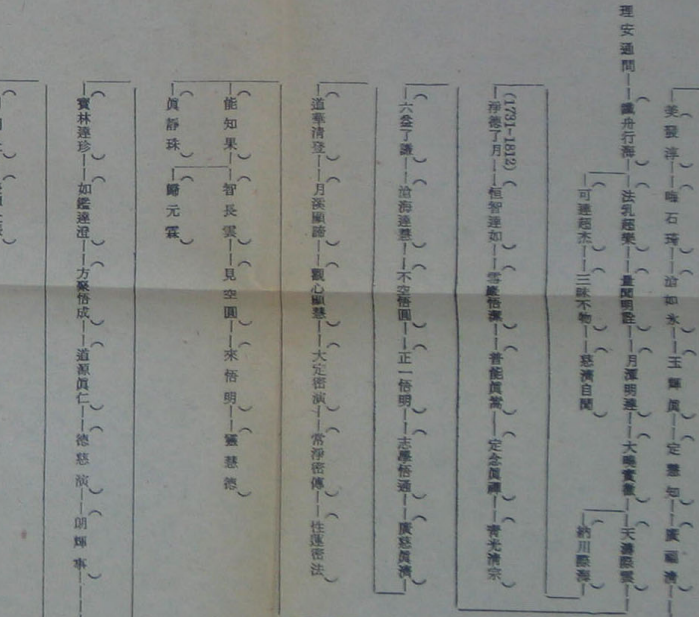 美發淳——　石琦——滄如永——玉輝眞——定慧知——廣福清——
理安通問——　舟行海——法乳超樂——量聞明詮——月潭明達——大曉實徹——天濤際雲——
可達超杰——三昧不物——慈濟自聞
納川際海
(1731-1812)
淨德了月——恒智達如——雪巖悟潔——普能眞嵩——定念眞禪——青光清宗
六益了謙——滄海達慧——不空悟圓——正一悟明——志學悟通——廣慈眞濟
道華清登——月溪顯諦——觀心顯慧——大定密演——常淨密傳——性蓮密法
能知果——智長雲——見空圓——來悟明——靈慧德
眞靜珠　歸元霖
寶林達珍——如鑑達澄——方聚悟成——道源眞仁——德慈演——朗輝事——